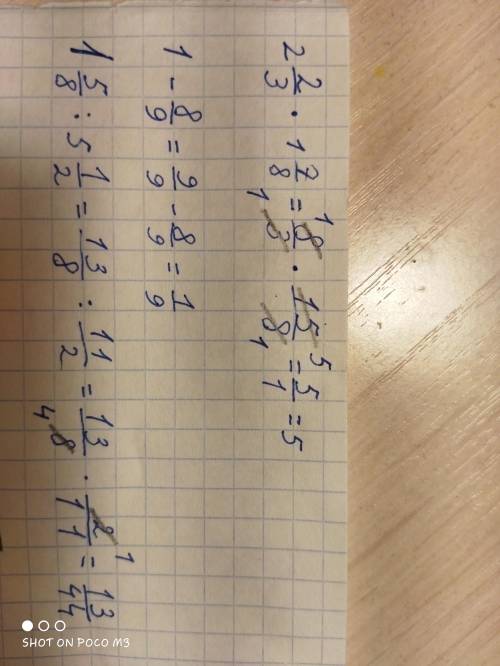 2 2/3 · 1 7/8 = 8/3 · 15/8 = 5/1 = 5
1 - 8/9 = 9/9 - 8/9 = 1/9
1 5/8 : 5 1/2 = 13/8 : 11/2 = 13/8 · 2/11 = 13/44
SHOT ON POCO M3